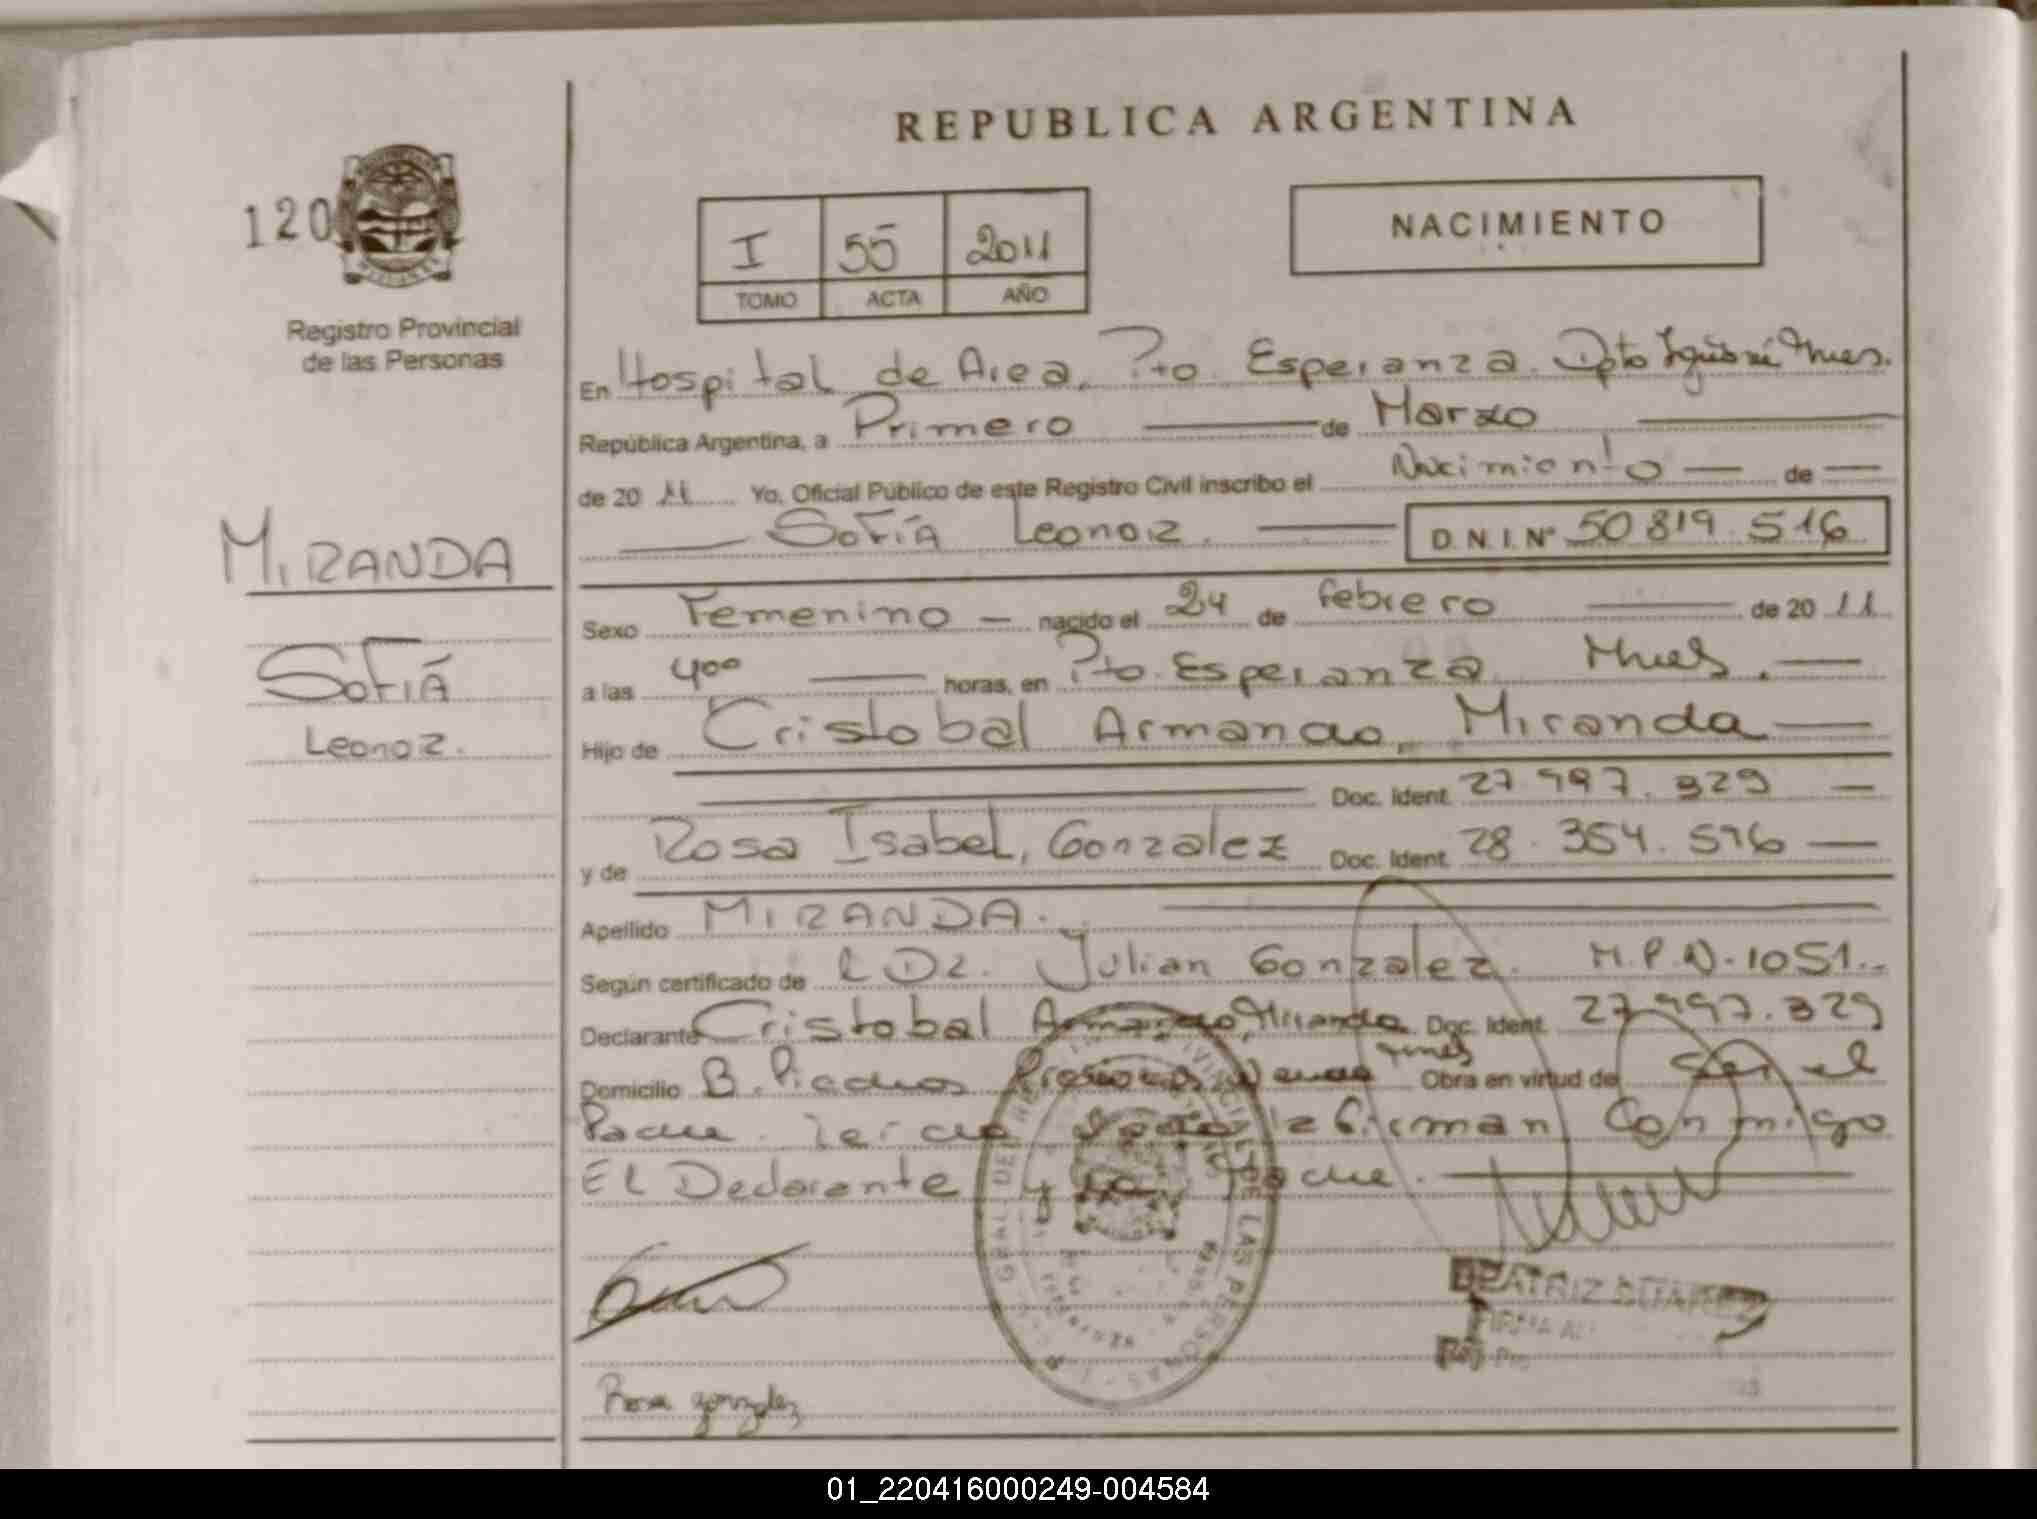 REPUBLICA ARGENTINA
120
I 55 2011
TOMO ACTA AÑO
NACIMIENTO
Registro Provincial
de las Personas
En Hospital de Area, Pto. Esperanza. Dpto Iguazú Mnes.
República Argentina, a Primero de Marzo
de 20 11 Yo, Oficial Público de este Registro Civil inscribo el Nacimiento de
Sofía Leonor. D.N.I.Nº 50 819.516
MIRANDA
Sofía
Leonor.
Sexo Femenino nacido el 24 de febrero de 20 11
a las 4°° horas, en Pto. Esperanza Mnes.
Hijo de Cristobal Armando, Miranda
Doc. Ident. 27.997.329
y de Rosa Isabel, Gonzalez Doc. Ident. 28.354.516
Apellido MIRANDA.
Según certificado de Dr. Julian Gonzalez. M.P.N.1051.
Declarante Cristobal Armando, Miranda Doc. Ident. 27.997.329
Domicilio B. Piedras Mnes Obra en virtud de Ser el
Padre. Leida firman Conmigo
El Declarante y la Madre.
Rosa gonzalez
BEATRIZ SUAREZ
01_220416000249-004584